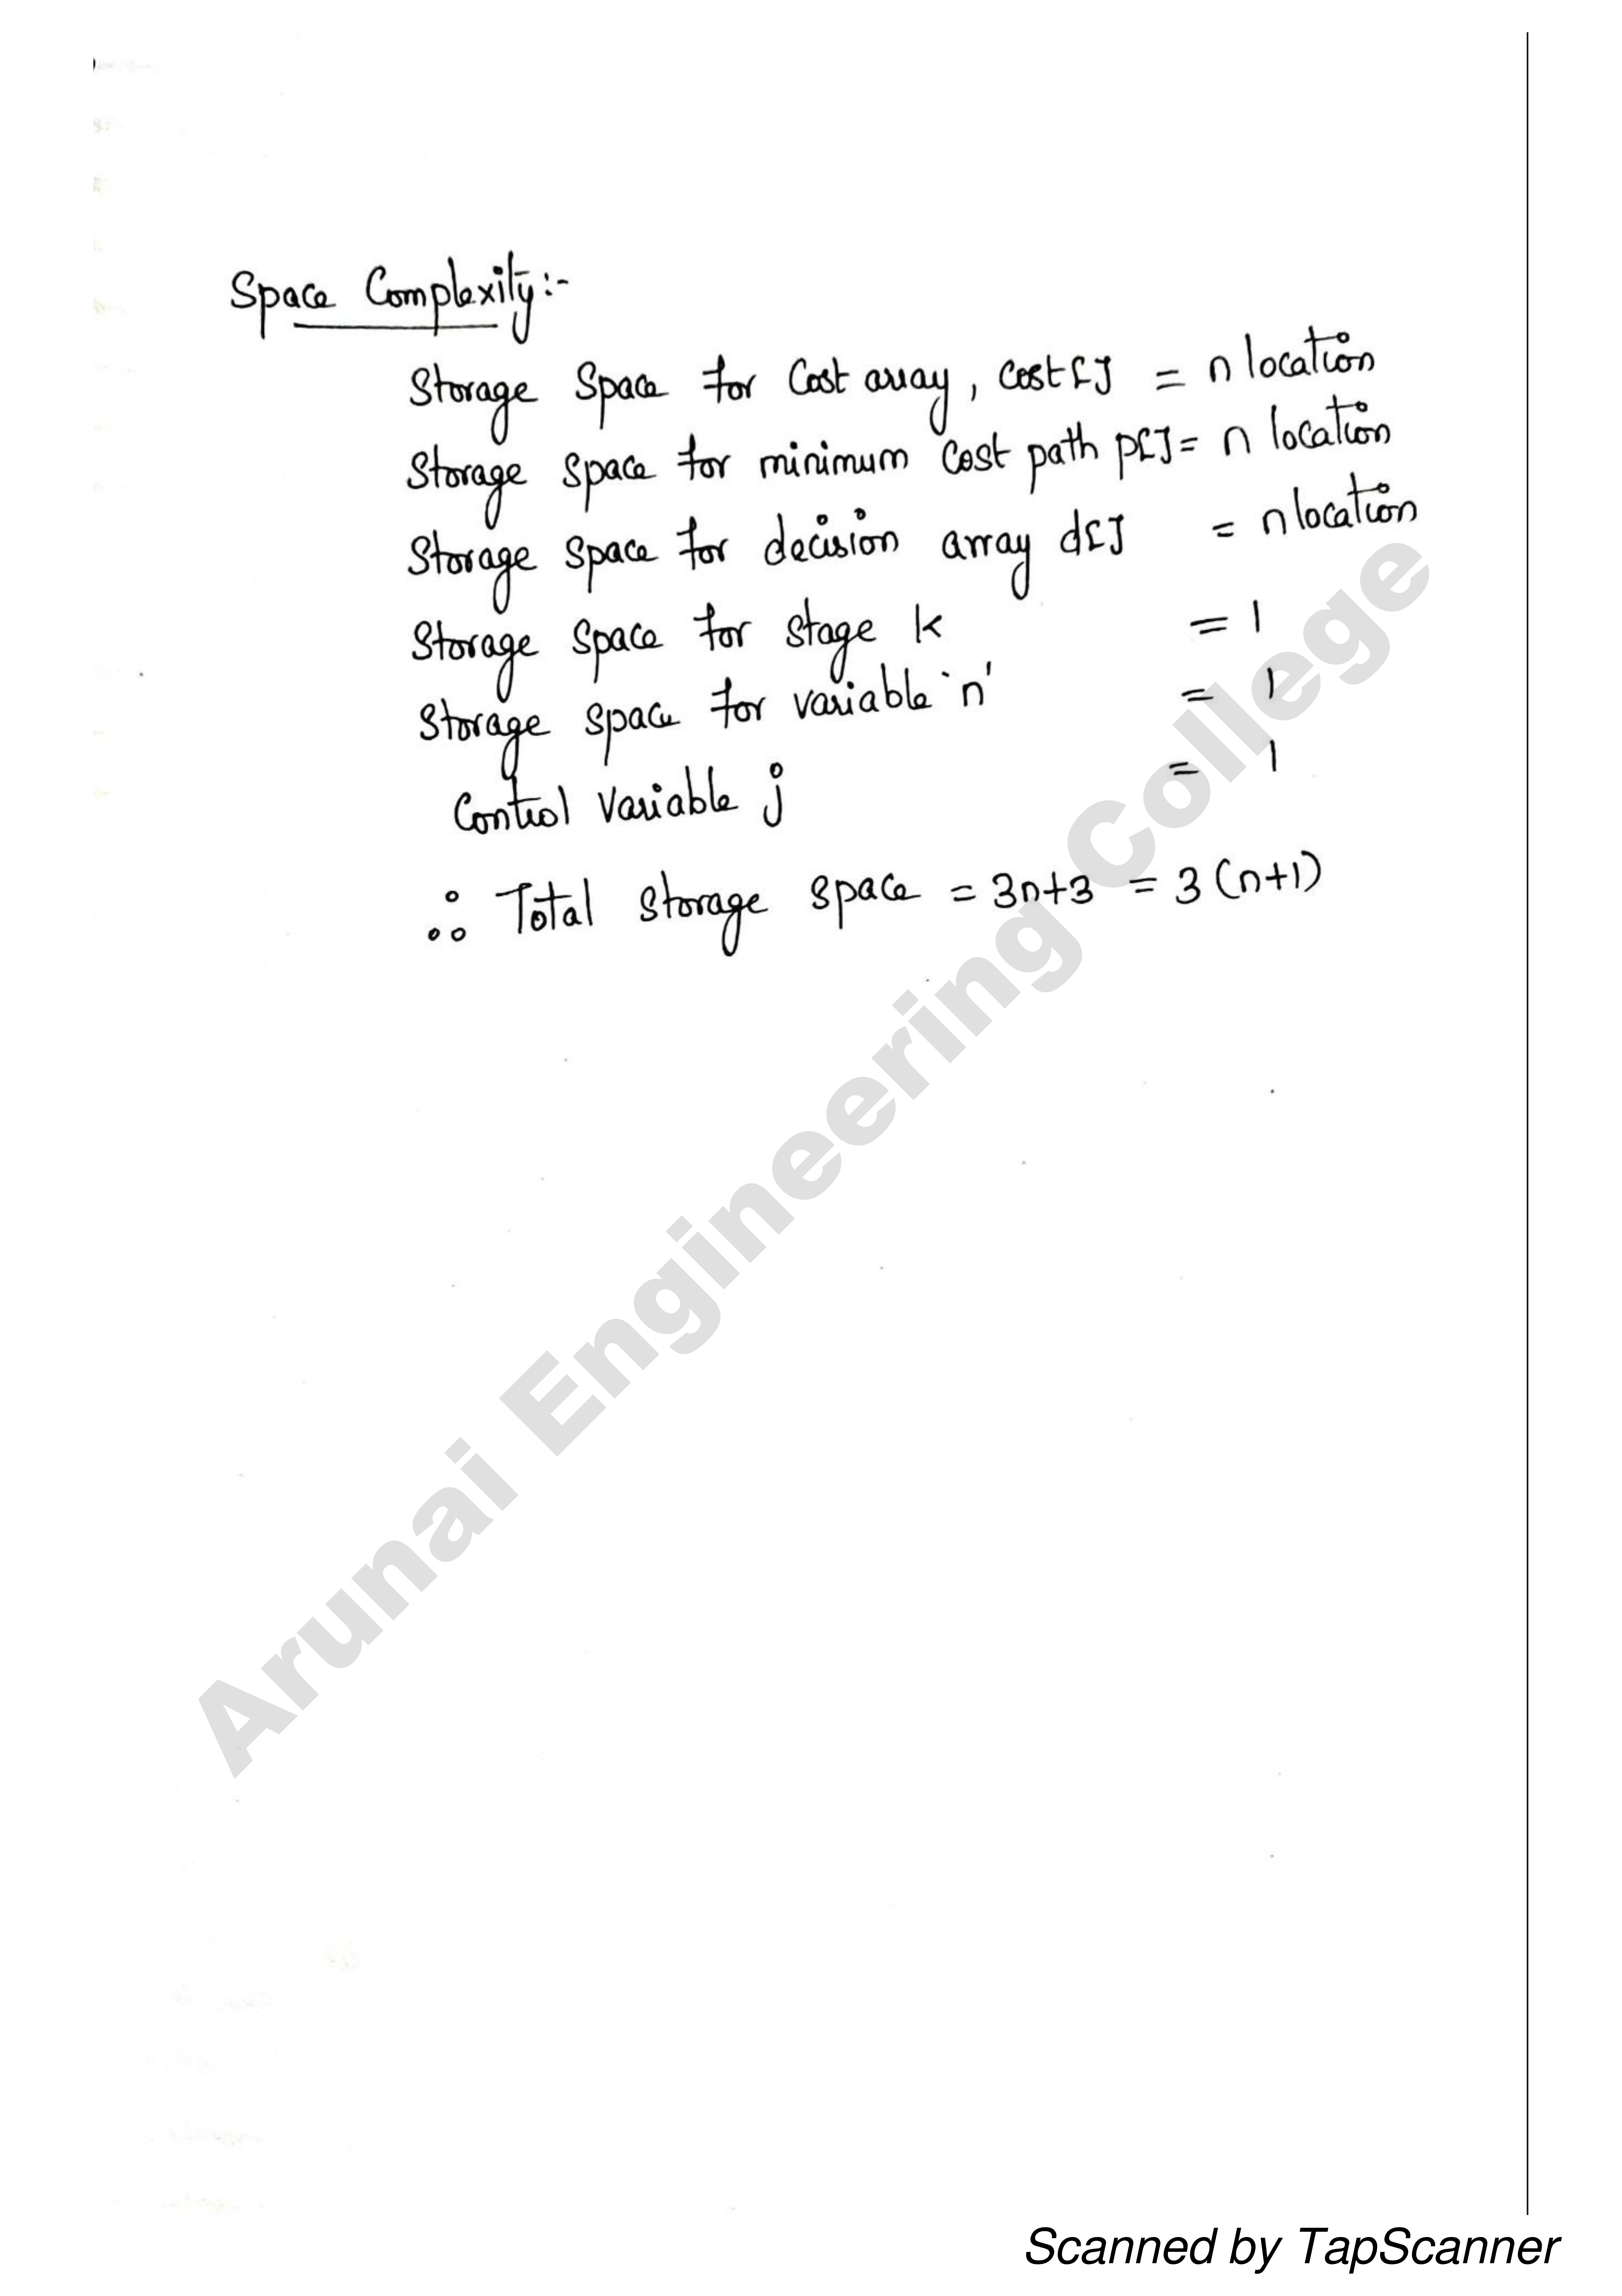 Space Complexity:-
Storage Space for Cost array, cost[] = n location
Storage Space for minimum Cost path p[] = n location
Storage Space for decision array d[] = n location
Storage Space for stage k = 1
Storage Space for variable 'n' = 1
Control Variable j = 1
∴ Total Storage Space = 3n+3 = 3(n+1)
Arunai Engineering College
Scanned by TapScanner